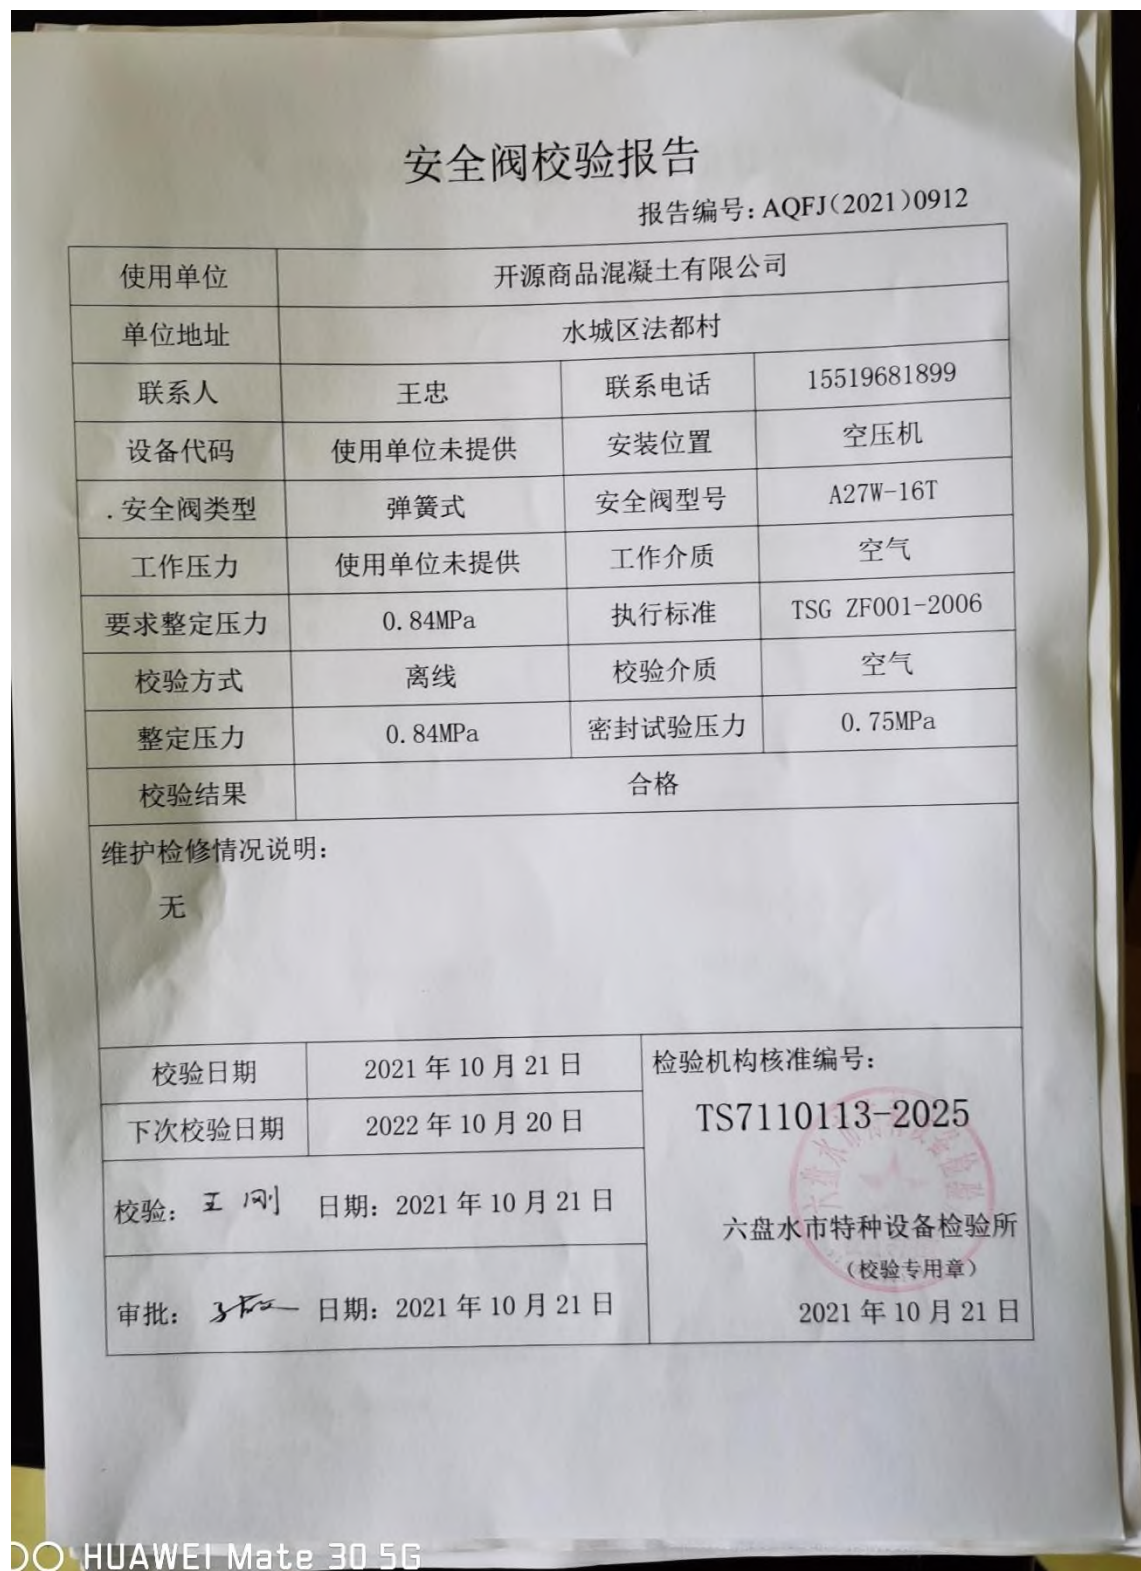 安全阀校验报告
报告编号：AQFJ（2021）0912
使用单位 开源商品混凝土有限公司
单位地址 水城区法都村
联系人 王忠 联系电话 15519681899
设备代码 使用单位未提供 安装位置 空压机
.安全阀类型 弹簧式 安全阀型号 A27W-16T
工作压力 使用单位未提供 工作介质 空气
要求整定压力 0.84MPa 执行标准 TSG ZF001-2006
校验方式 离线 校验介质 空气
整定压力 0.84MPa 密封试验压力 0.75MPa
校验结果 合格
维护检修情况说明：
无
校验日期 2021 年 10 月 21 日
下次校验日期 2022 年 10 月 20 日
校验： 王刚 日期：2021 年 10 月 21 日
审批： 日期：2021 年 10 月 21 日
检验机构核准编号：
TS7110113-2025
六盘水市特种设备检验所
（校验专用章）
2021 年 10 月 21 日
HUAWEI Mate 30 5G